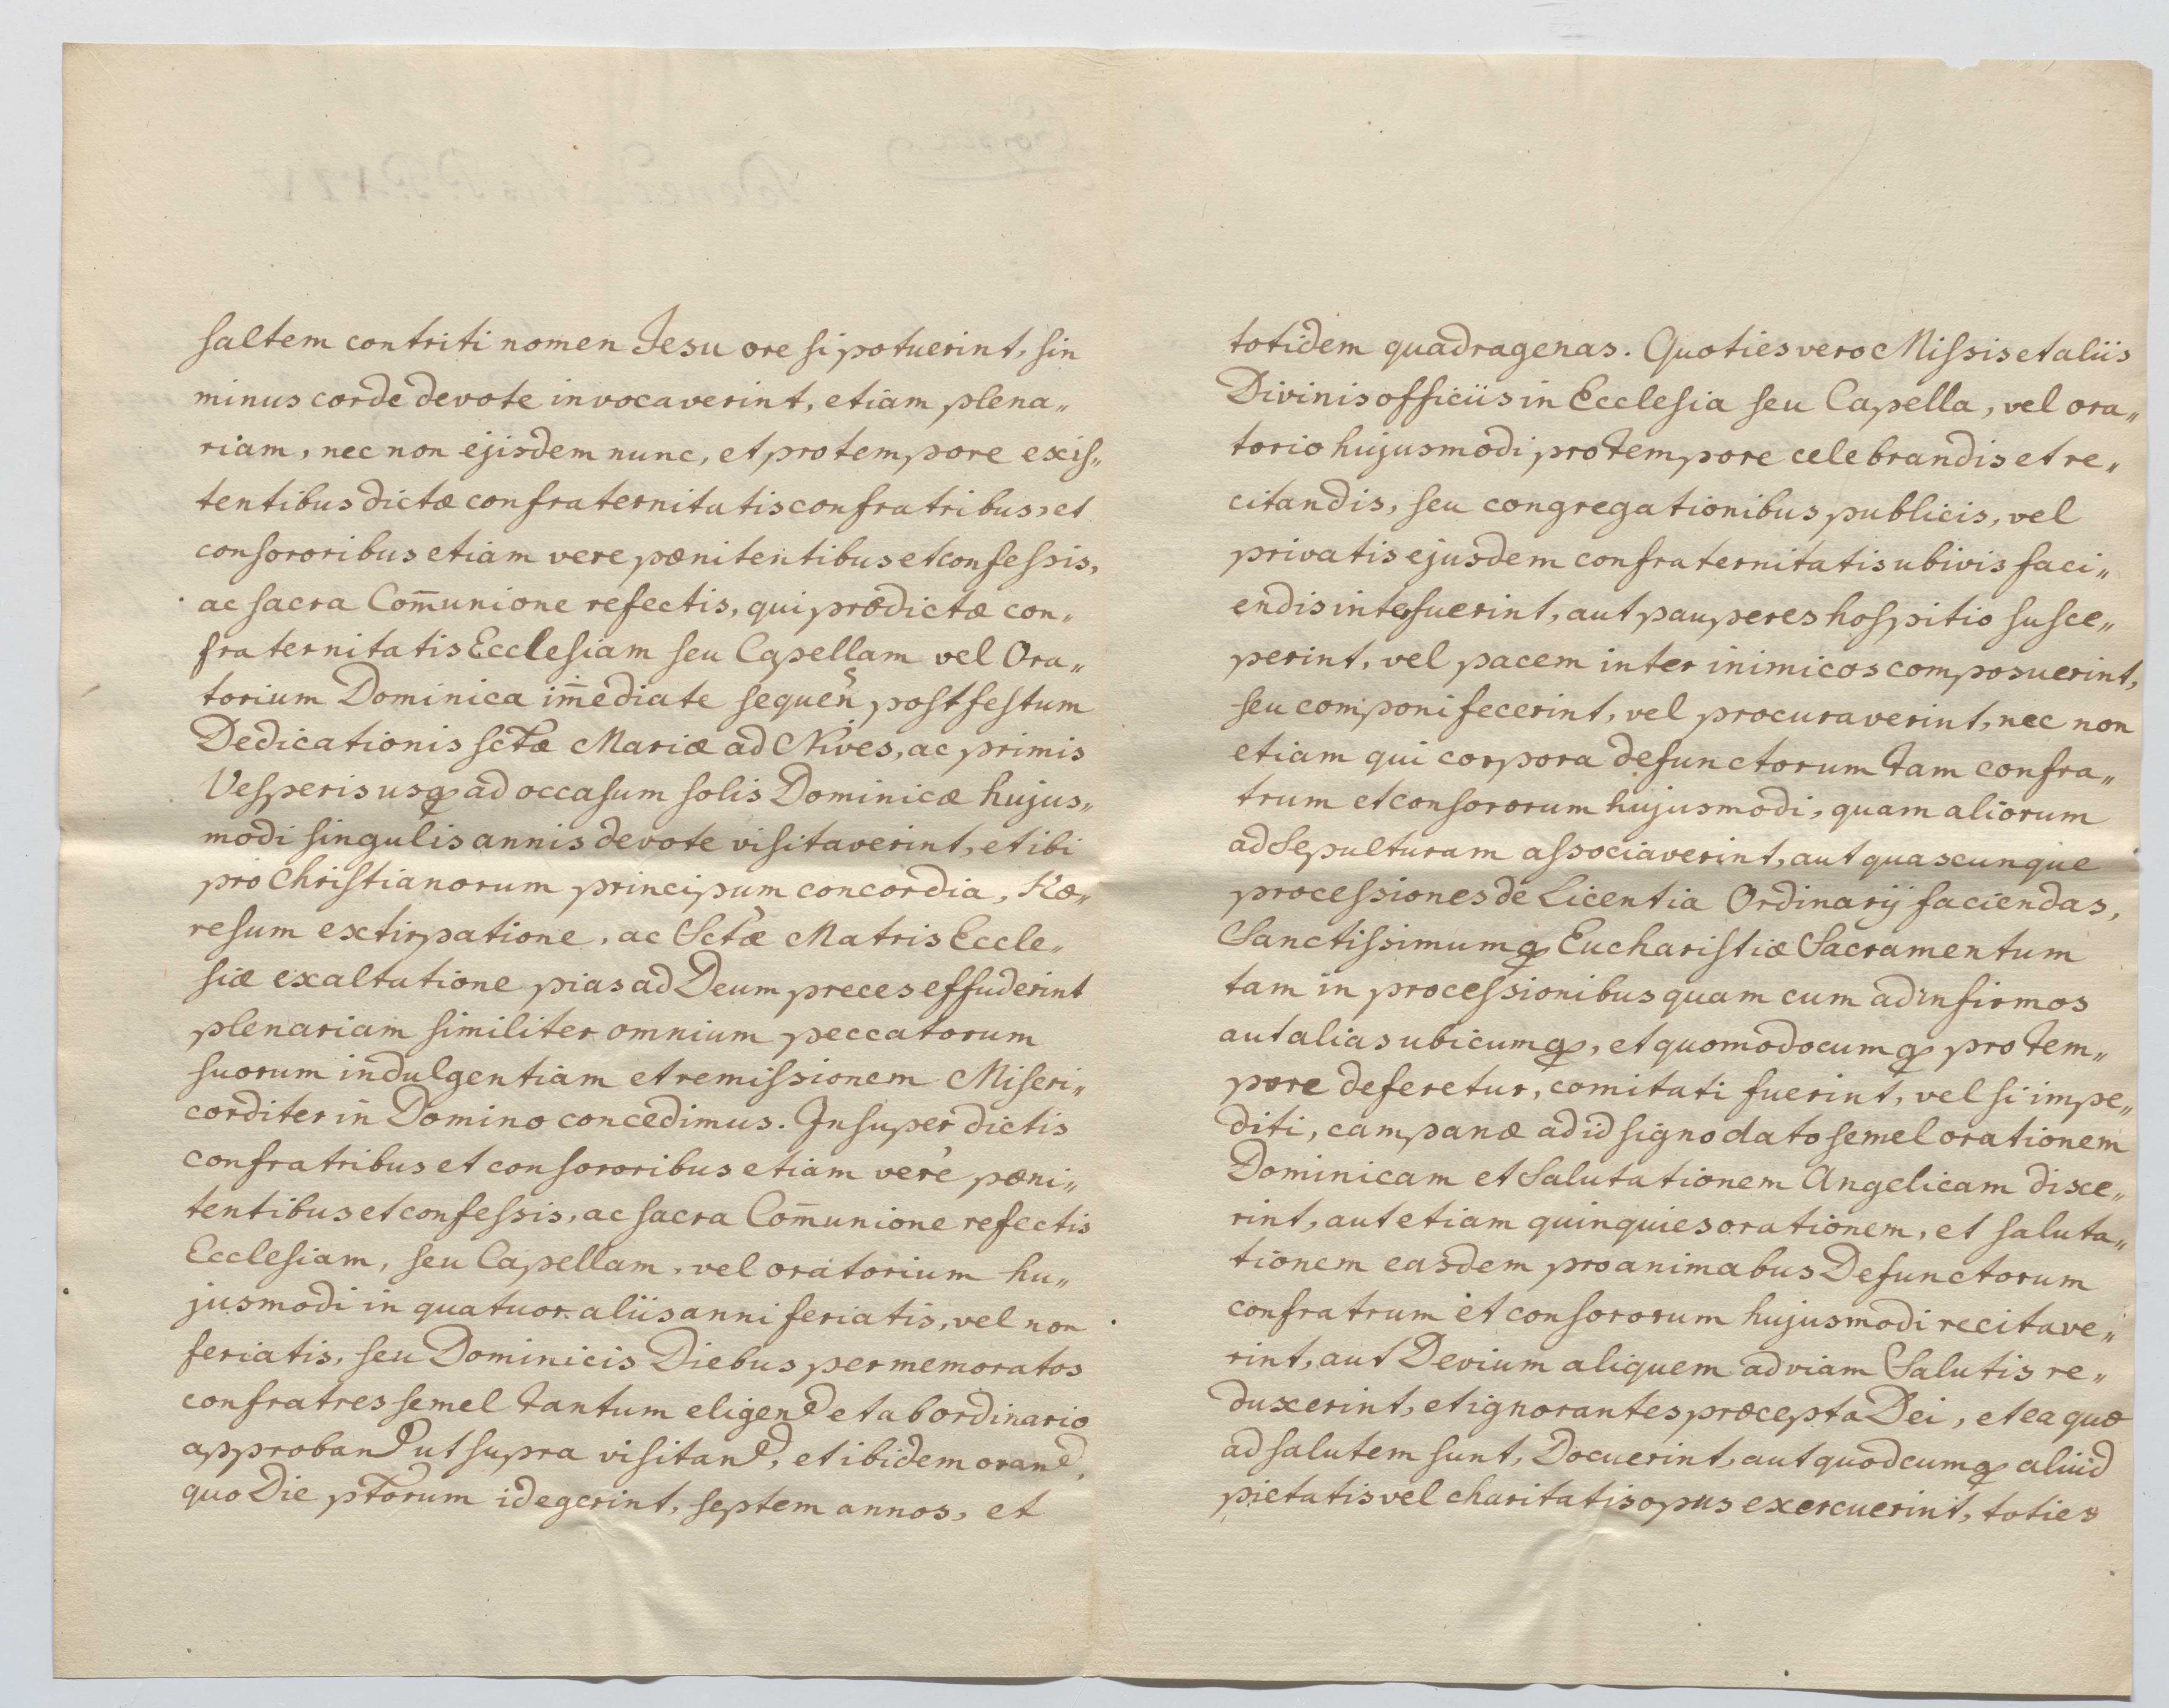 saltem contriti nomen Jesu ore si potuerint, sin
minus corde devote invocaverint, etiam plena„
riam, nec non ejisdem nunc, et pro tempore exis„
tentibus dictæ confraternitatis confratribus, et
consororibus etiam vere pænitentibus et confessis,
ac sacra Com̄unione refectis, qui prædictæ con„
fraternitatis Ecclesiam seu Capellam vel Ora„
torium Dominica im̄ediate sequen̄ post festum
Dedicationis sctæ Mariæ ad Nives, ac primis
Vesperis usq ad occasum solis Dominicæ hujus„
modi singulis annis devote visitaverint, et ibi
pro Christianorum principum concordia, Hæ„
resum extirpatione, ac Sctæ Matris Eccle„
siæ exaltatione pias ad Deum preces effuderint
plenariam similiter omnium peccatorum
suorum indulgentiam et remissionem Miseri„
corditer in Domino concedimus. Insuper dictis
confratribus et consororibus etiam verè pæni„
tentibus et confessis, ac sacra Com̄unione refectis
Ecclesiam, seu Capellam, vel oratorium hu„
jusmodi in quatuor aliis anni feriatis, vel non
feriatis, seu Dominicis Diebus per memoratos
confratres semel tantum eligend et ab ordinario
approband ut supra visitand, et ibidem orand,
quo Die ptorum id egerint, septem annos, et
totidem quadragenas. Quoties vero Missis et aliis
Divinis officiis in Ecclesia seu Capella, vel ora„
torio hujusmodi pro tempore celebrandis et re„
citandis, seu congregationibus publicis, vel
privatis ejusdem confraternitatis ubivis faci„
endis interfuerint, aut pauperes hospitio susce„
perint, vel pacem inter inimicos composuerint,
seu componi fecerint, vel procuraverint, nec non
etiam qui corpora defunctorum tam confra„
trum et consororum hujusmodi, quam aliorum
ad Sepulturam associaverint, aut quascunque
processiones de Licentia Ordinarij faciendas,
Sanctissimumq Eucharistiæ Sacramentum
tam in processionibus quam cum ad infirmos
aut alias ubicumq, et quomodocumq pro tem„
pore deferetur, comitati fuerint, vel si impe„
diti, campanæ ad id signo dato semel orationem
Dominicam et Salutationem Angelicam dixe„
rint, aut etiam quinquies orationem, et saluta„
tionem easdem pro animabus Defunctorum
confratrum et consororum hujusmodi recitave„
rint, aut Devium aliquem ad viam Salutis re„
duxerint, et ignorantes præcepta Dei, et ea quæ
ad salutem sunt, Docuerint, aut quodcumq aliud
pietatis vel charitatis opus exercuerint, toties